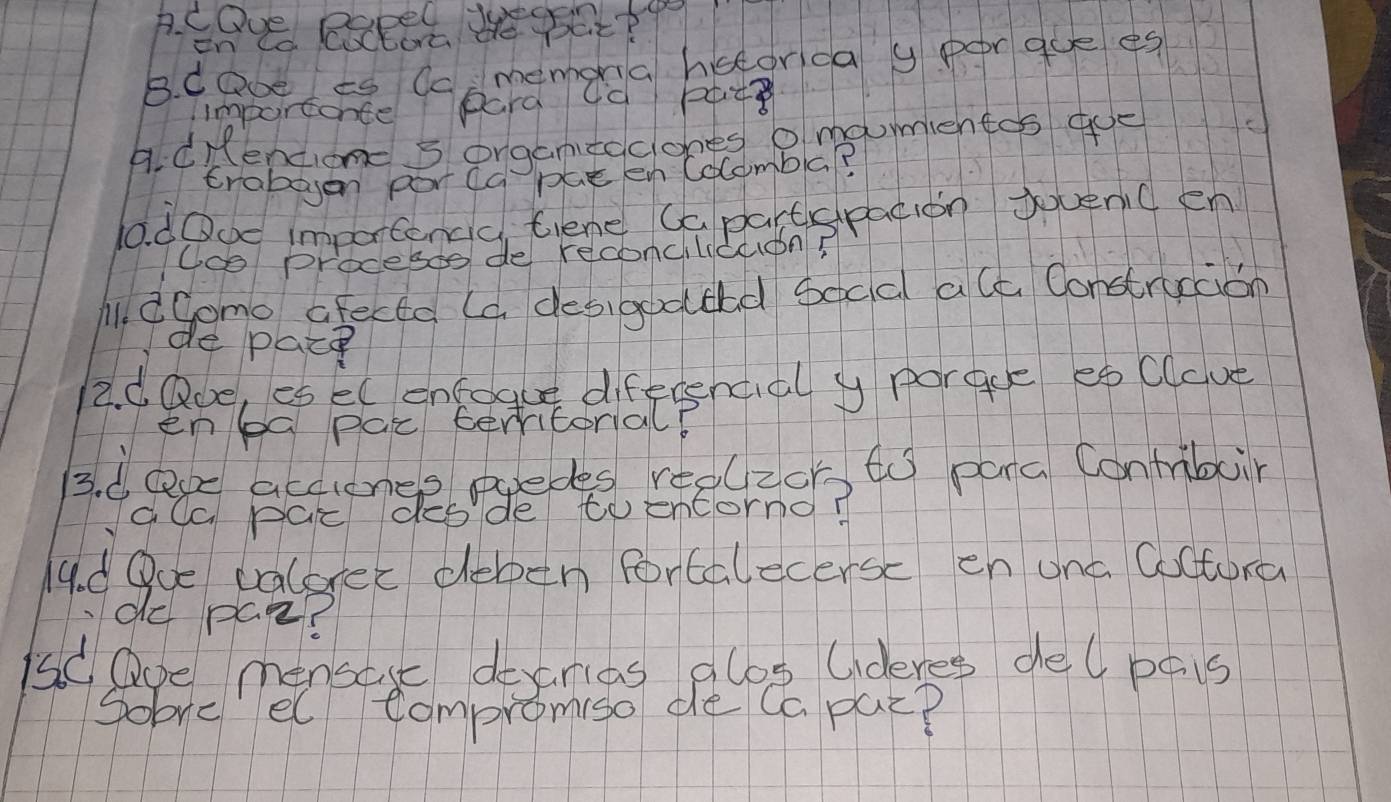 7.¿Que papel juegan
en la cultura de paz?
8.¿Que es la memoria historica y por que es
importante para la paz?
9.¿Mencione 5 organizaciones o movimientos que
trabajan por la paz en Colombia?
10.¿Que importancia tiene la participación juvenil en
los procesos de reconciliación?
11.¿Como afecta la desigualdad social a la Construcción
de paz?
12.¿Que es el enfoque diferencial y porque es Clave
en la paz territorial?
13.¿Que acciones puedes realizar tu para Contribuir
a la paz desde tu entorno?
14.¿Que valorez deben fortalecerse en una Cultura
de paz?
15.¿Que mensaje dejarias a los lideres del pais
Sobre el compromiso de la paz?